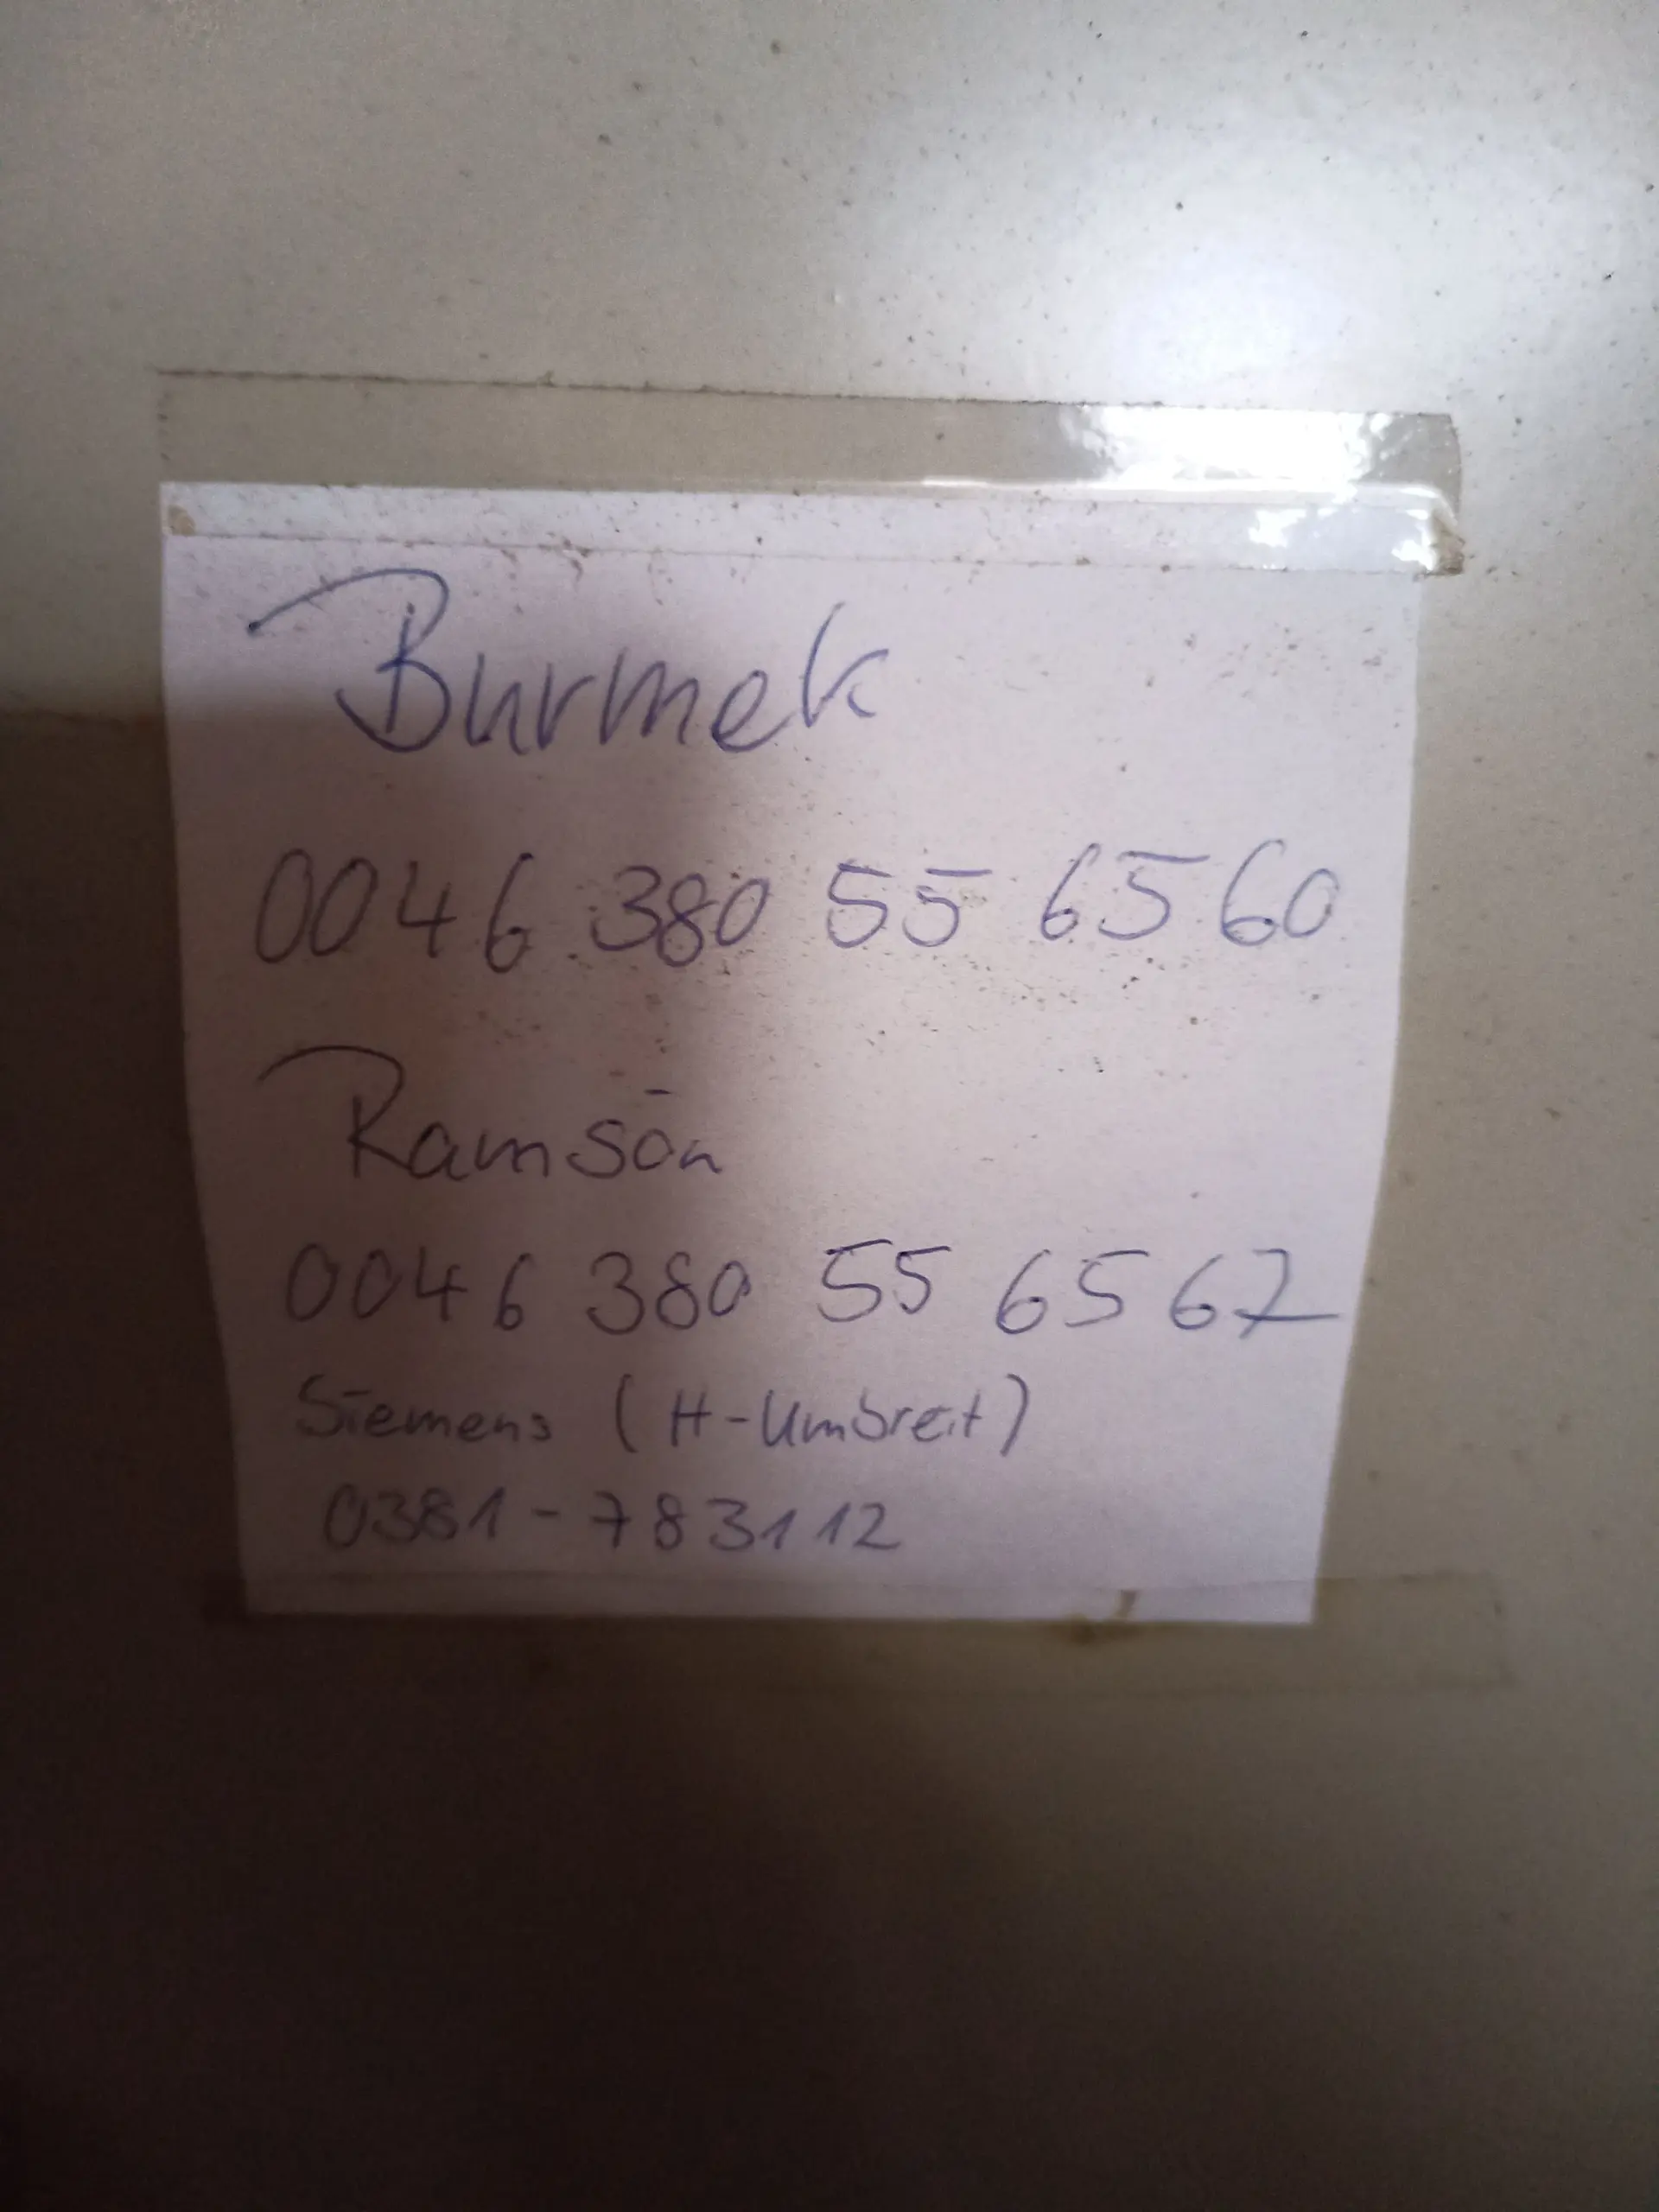 Burmek
0046 380 55 65 60
Ramsön
0046 380 55 65 67
Siemens (H-Umbreit)
0381-783112